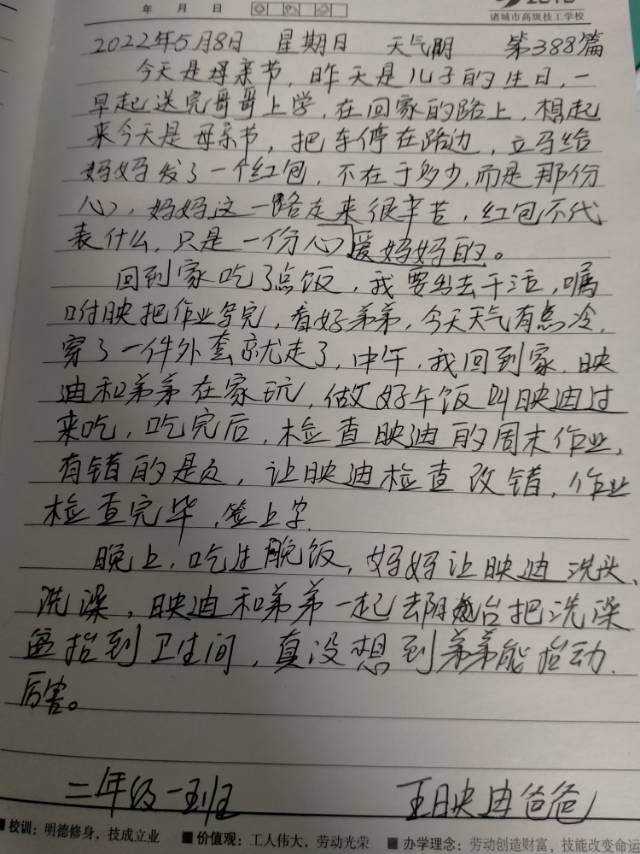 年 月 日
诸城市高级技工学校
2022年5月8日 星期日 天气晴 第388篇
今天是母亲节，昨天是儿子的生日，一
早起送完哥哥上学，在回家的路上，想起
来今天是母亲节，把车停在路边，立马给
妈妈发了一个红包，不在于多少，而是那份
心，妈妈这一路走来很辛苦，红包不代
表什么，只是一份心爱妈妈的。
回到家吃了点饭，我要出去干活，嘱
咐映把作业写完，看好弟弟，今天天气有点冷，
穿了一件外套就走了，中午，我回到家，映
迪和弟弟在家玩，做好午饭叫映迪过
来吃，吃完后，检查映迪的周末作业，
有错的是点，让映迪检查改错，作业
检查完毕，签上字。
晚上，吃过晚饭，妈妈让映迪洗头、
洗澡，映迪和弟弟一起去阳台把洗澡
盆抬到卫生间，真没想到弟弟能抬动，
厉害。
二年级一班 王映迪爸爸
■校训：明德修身，技成立业 ■价值观：工人伟大，劳动光荣 ■办学理念：劳动创造财富，技能改变命运